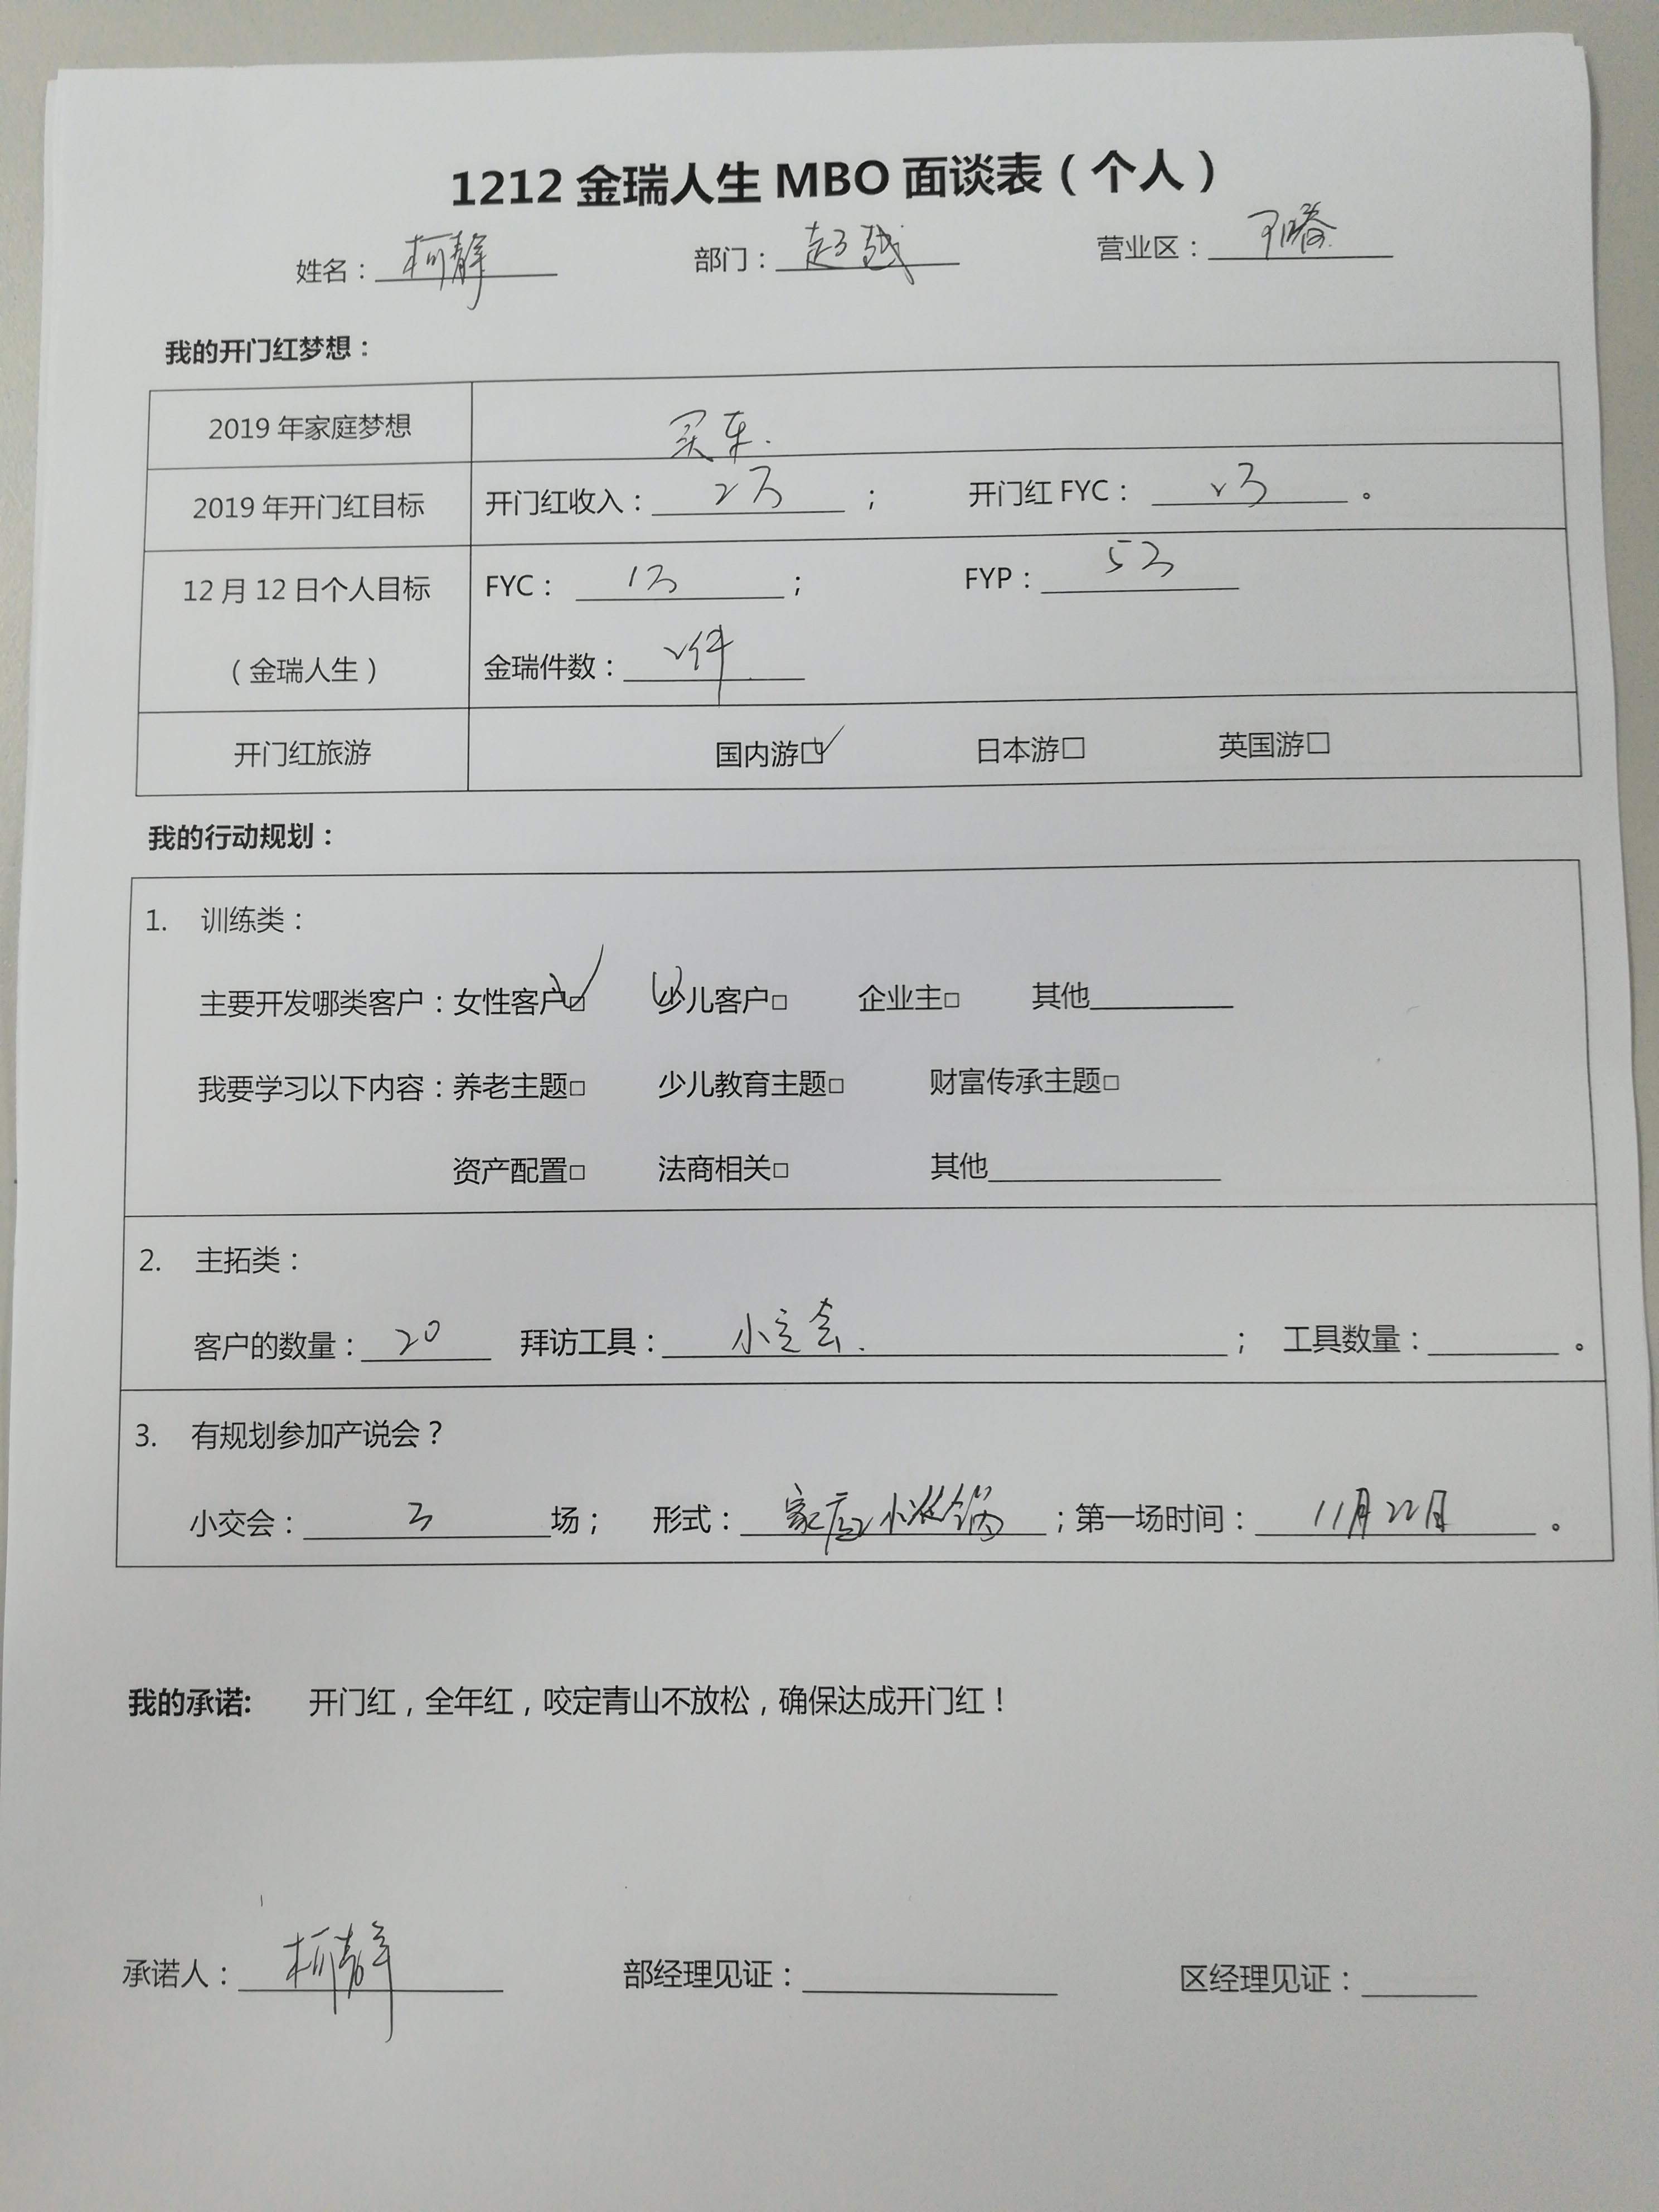 1212 金瑞人生 MBO 面谈表（个人）
姓名：柯静 部门：超越 营业区：
我的开门红梦想：
2019 年家庭梦想 买车.
2019 年开门红目标 开门红收入：2万； 开门红 FYC：2万。
12 月 12 日个人目标 FYC：1万； FYP：5万
（金瑞人生） 金瑞件数：2件
开门红旅游 国内游☑ 日本游□ 英国游□
我的行动规划：
1. 训练类：
主要开发哪类客户：女性客户☑ 少儿客户□ 企业主□ 其他
我要学习以下内容：养老主题□ 少儿教育主题□ 财富传承主题□
资产配置□ 法商相关□ 其他
2. 主拓类：
客户的数量：20 拜访工具：小交会.； 工具数量：。
3. 有规划参加产说会？
小交会：3场； 形式：家庭小火锅；第一场时间：11月22日。
我的承诺: 开门红，全年红，咬定青山不放松，确保达成开门红！
承诺人：柯静 部经理见证： 区经理见证：